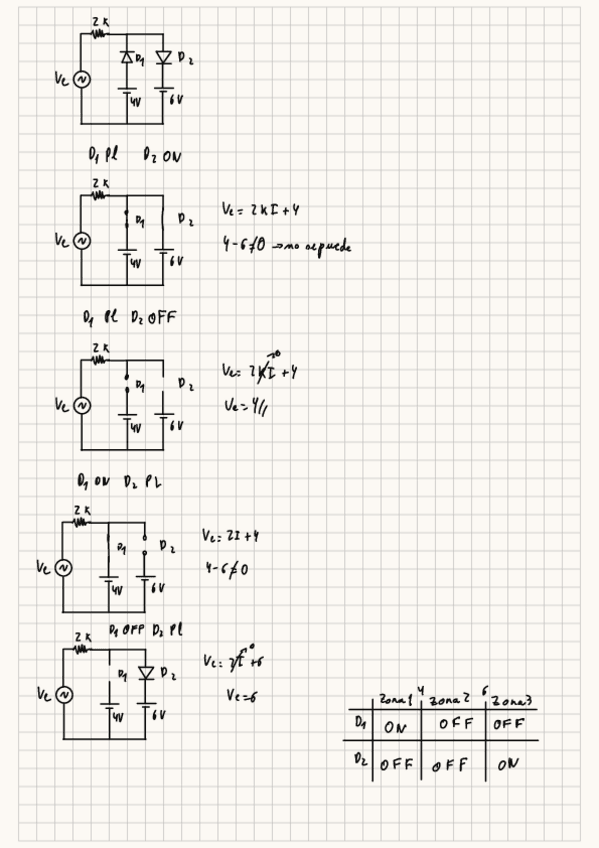 2 K
D1 D2
Ve
4V 6V
D1 Pl D2 ON
2 K
D1 D2
Ve
4V 6V
Ve = 2KI + 4
4-6≠0 → no se puede
D1 Pl D2 OFF
2 K
D1 D2
Ve
4V 6V
Ve = 2KI→0 + 4
Ve = 4//
D1 ON D2 PL
2 K
D1 D2
Ve
4V 6V
Ve = 2I + 4
4-6≠0
D1 OFF D2 Pl
2 K
D1 D2
Ve
4V 6V
Ve = 2I→0 + 6
Ve = 6
Zona1 4 Zona2 6 Zona3
D1 ON OFF OFF
D2 OFF OFF ON